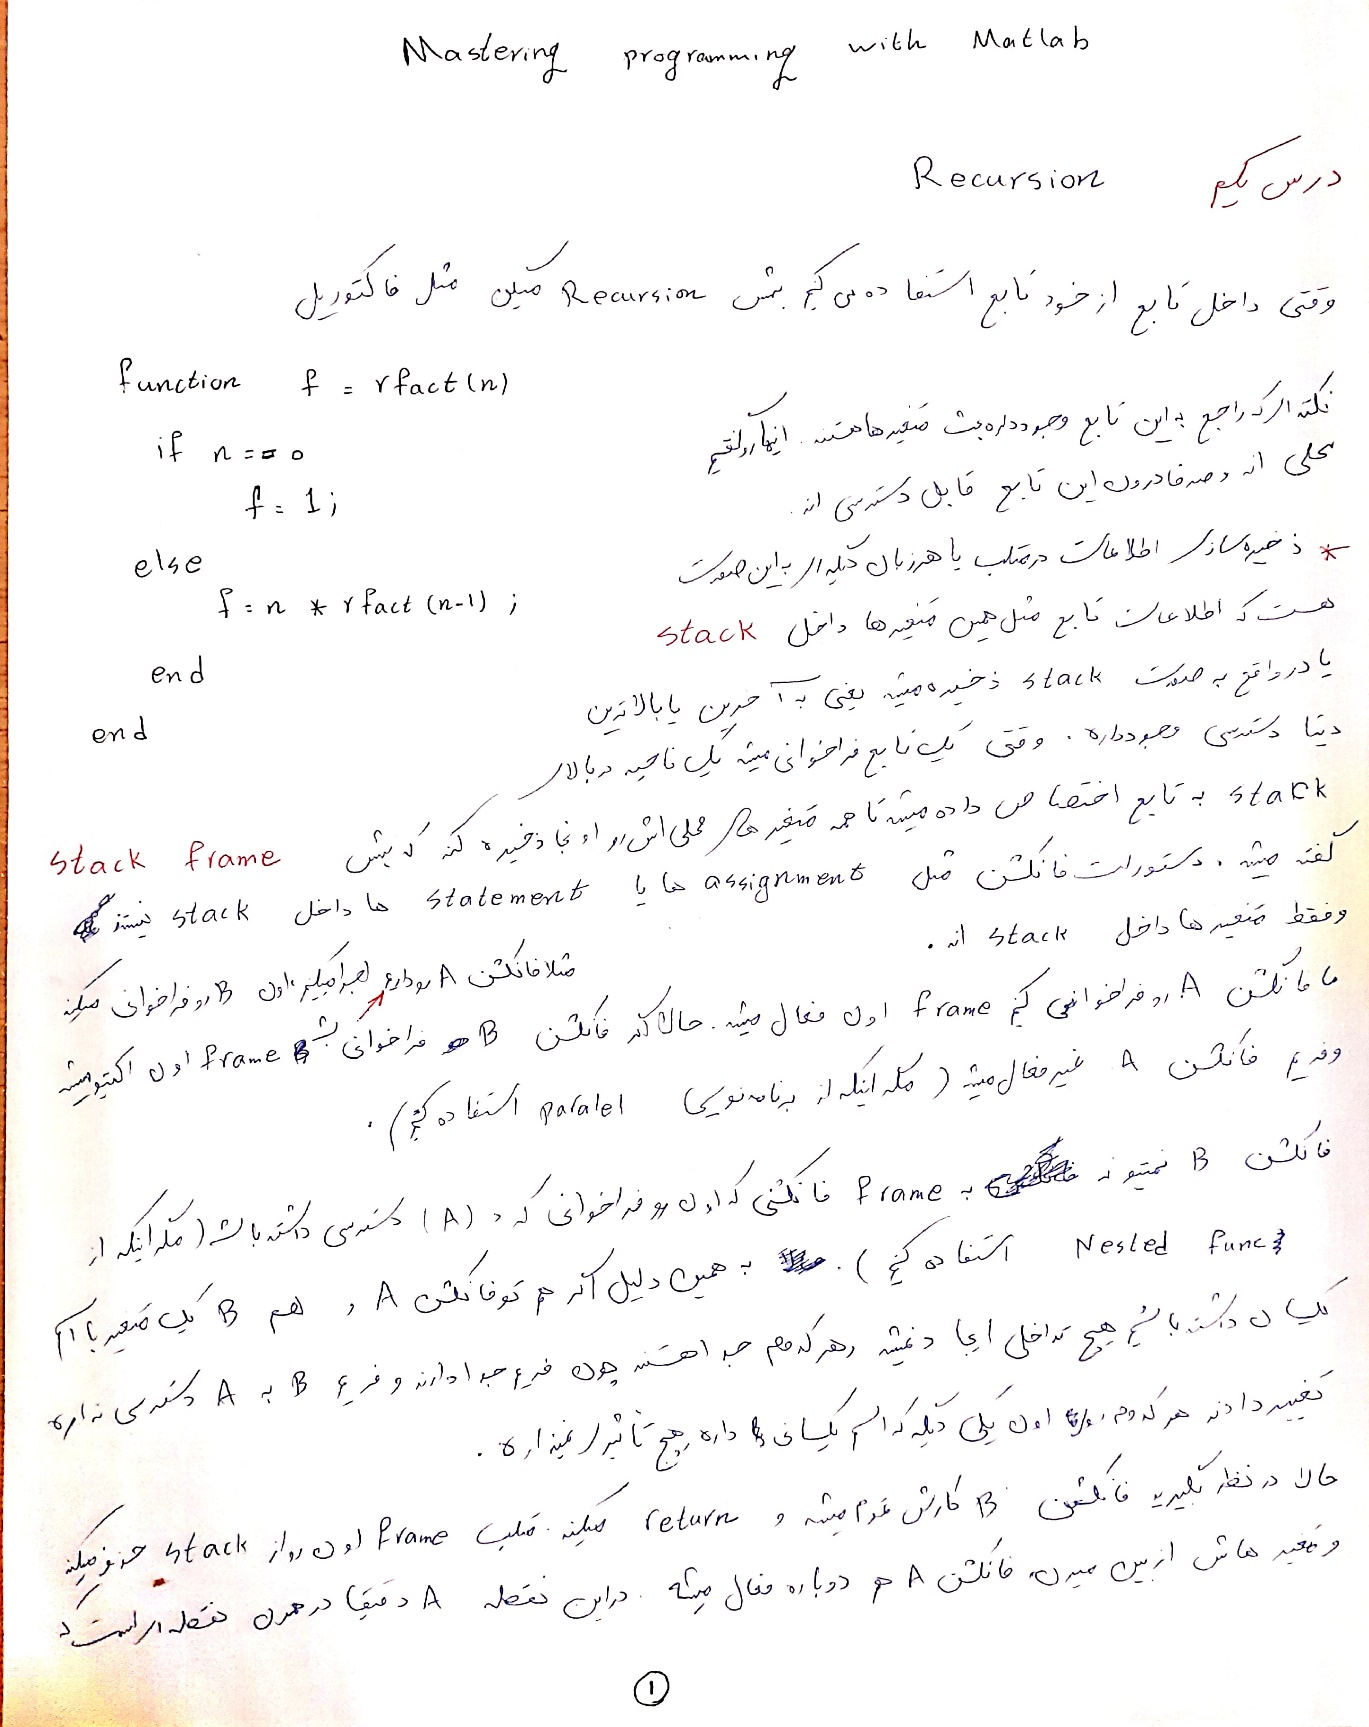 Mastering programming with Matlab
درس یکم Recursion
وقتی داخل تابع از خود تابع استفاده می کنیم بهش Recursion میگن مثل فاکتوریل
function f = rfact(n)
if n == 0
f = 1;
else
f = n * rfact(n-1);
end
end
نکته ای که راجع به این تابع وجود داره بحث متغیرها هستند. اینجا که گفتیم
محلی اند و صرفا درون این تابع قابل دسترسی اند.
* ذخیره سازی اطلاعات در متلب یا هر زبان دیگه ای به این صورت
هست که اطلاعات تابع مثل همین متغیرها داخل stack
یا در واقع به صورت stack ذخیره میشه یعنی به آخرین یا بالاترین
دیتا دسترسی وجود داره. وقتی یک تابع فراخوانی میشه یک ناحیه در بالای
stack به تابع اختصاص داده میشه تا همه متغیرهای محلی اش رو اونجا ذخیره کنه که بهش stack frame
گفته میشه. دستورات فانکشن مثل assignment ها یا statement ها داخل stack نیستند
و فقط متغیرها داخل stack اند.
مثلا فانکشن A رو داریم اجرا میکنیم، اون B رو فراخوانی میکنه
ما فانکشن A رو فراخوانی می کنیم frame اون فعال میشه. حالا اگر فانکشن B فراخوانی بشه frame اون اکتیو میشه
و فریم فانکشن A غیرفعال میشه (مگر اینکه از برنامه نویسی paralel استفاده کنیم).
فانکشن B نمیتونه به frame فانکشنی که اون رو فراخوانی کرد (A) دسترسی داشته باشد (مگر اینکه از
Nested func استفاده کنیم). به همین دلیل اگر هم تو فانکشن A و هم B یک متغیر با اسم
یکسان داشته باشیم هیچ تداخلی ایجاد نمیشه و هر کدوم جدا هستند چون فریم جدا دارند و فریم B به A دسترسی نداره
تغییر دادن هر کدوم روی اون یکی دیگه که اسم یکسانی داره هیچ تأثیری نمیذاره.
حالا در نظر بگیرید فانکشن B کارش تموم میشه و return میکنه. متلب frame اون رو از stack حذف میکنه
و متغیر هاش از بین میرن. فانکشن A هم دوباره فعال میشه. در این نقطه A دقیقا در همون نقطه ای است که
1